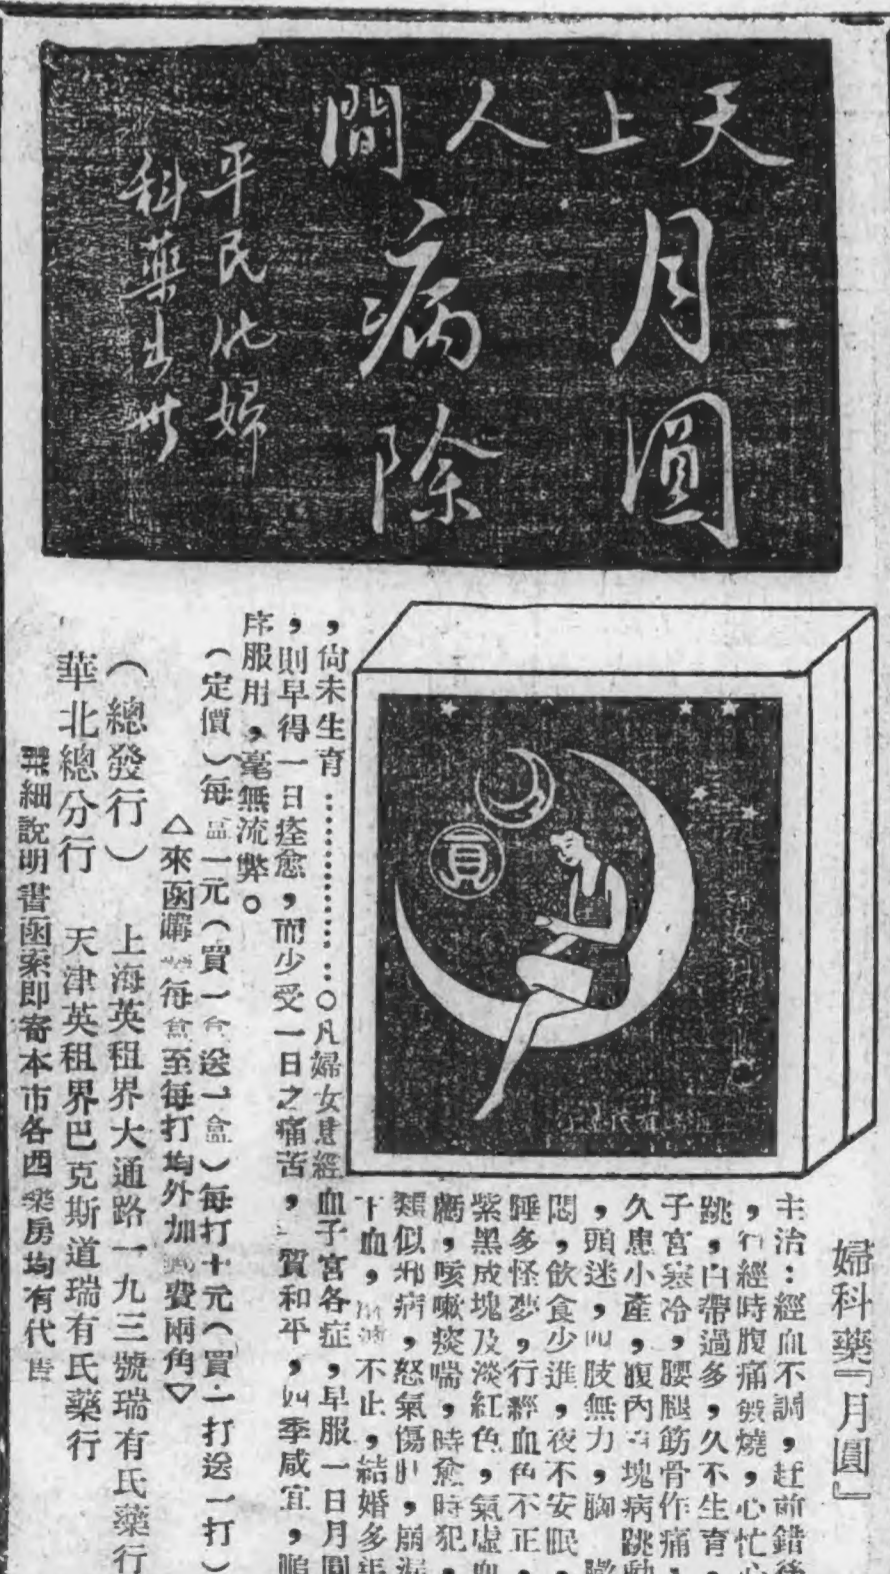 天上人間
月圓
病除
平民化婦
科藥出世
月
圓
婦科藥『月圓』
主治：經血不調，趕前錯後
，行經時腹痛發燒，心忙心
跳，白帶過多，久不生育，
子宮寒冷，腰腿筋骨作痛，
久患小產，腹內有塊病跳動
，頭迷，四肢無力，胸
悶，飲食少進，夜不安眠，
睡多怪夢，行經血色不正，
紫黑成塊及淡紅色，氣虛血
虧，咳嗽痰喘，時愈時犯，
類似邪病，怒氣傷肝，崩漏
下血，不止，結婚多年
，尚未生育…………。凡婦女患經血子宮各症，早服一日月圓
，則早得一日痊愈，而少受一日之痛苦，質和平，四季咸宜，
服用，毫無流弊。
（定價）每盒一元（買一盒送一盒）每打十元（買一打送一打）
△來函購每盒至每打均外加費兩角▽
（總發行）　上海英租界大通路一九三號瑞有氏藥行
華北總分行　天津英租界巴克斯道瑞有氏藥行
詳細說明書函索即寄本市各西藥房均有代售